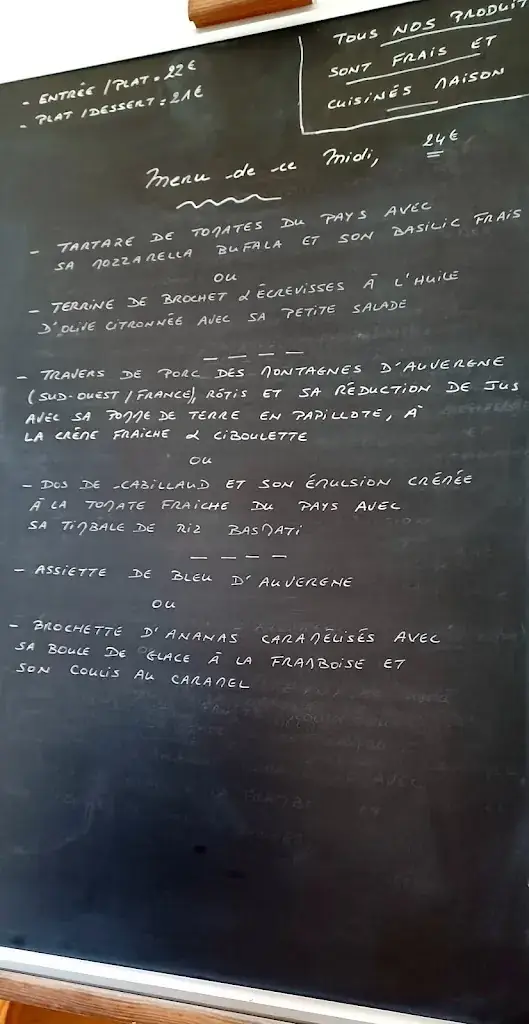 - ENTRÉE / PLAT = 22€
- PLAT / DESSERT = 21€
TOUS NOS PRODUIT
SONT FRAIS ET
CUISINÉS MAISON
Menu de ce Midi, 24€
- TARTARE DE TOMATES DU PAYS AVEC
SA MOZZARELLA BUFALA ET SON BASILIC FRAIS
OU
- TERRINE DE BROCHET & ÉCREVISSES À L'HUILE
D'OLIVE CITRONNÉE AVEC SA PETITE SALADE
- TRAVERS DE PORC DES MONTAGNES D'AUVERGNE
(SUD-OUEST / FRANCE), RÔTIS ET SA RÉDUCTION DE JUS
AVEC SA POMME DE TERRE EN PAPILLOTE, À
LA CRÈME FRAICHE & CIBOULETTE
OU
- DOS DE CABILLAUD ET SON ÉMULSION CRÉMÉE
À LA TOMATE FRAICHE DU PAYS AVEC
SA TIMBALE DE RIZ BASMATI
- ASSIETTE DE BLEU D'AUVERGNE
OU
- BROCHETTE D'ANANAS CARAMÉLISÉS AVEC
SA BOULE DE GLACE À LA FRAMBOISE ET
SON COULIS AU CARAMEL